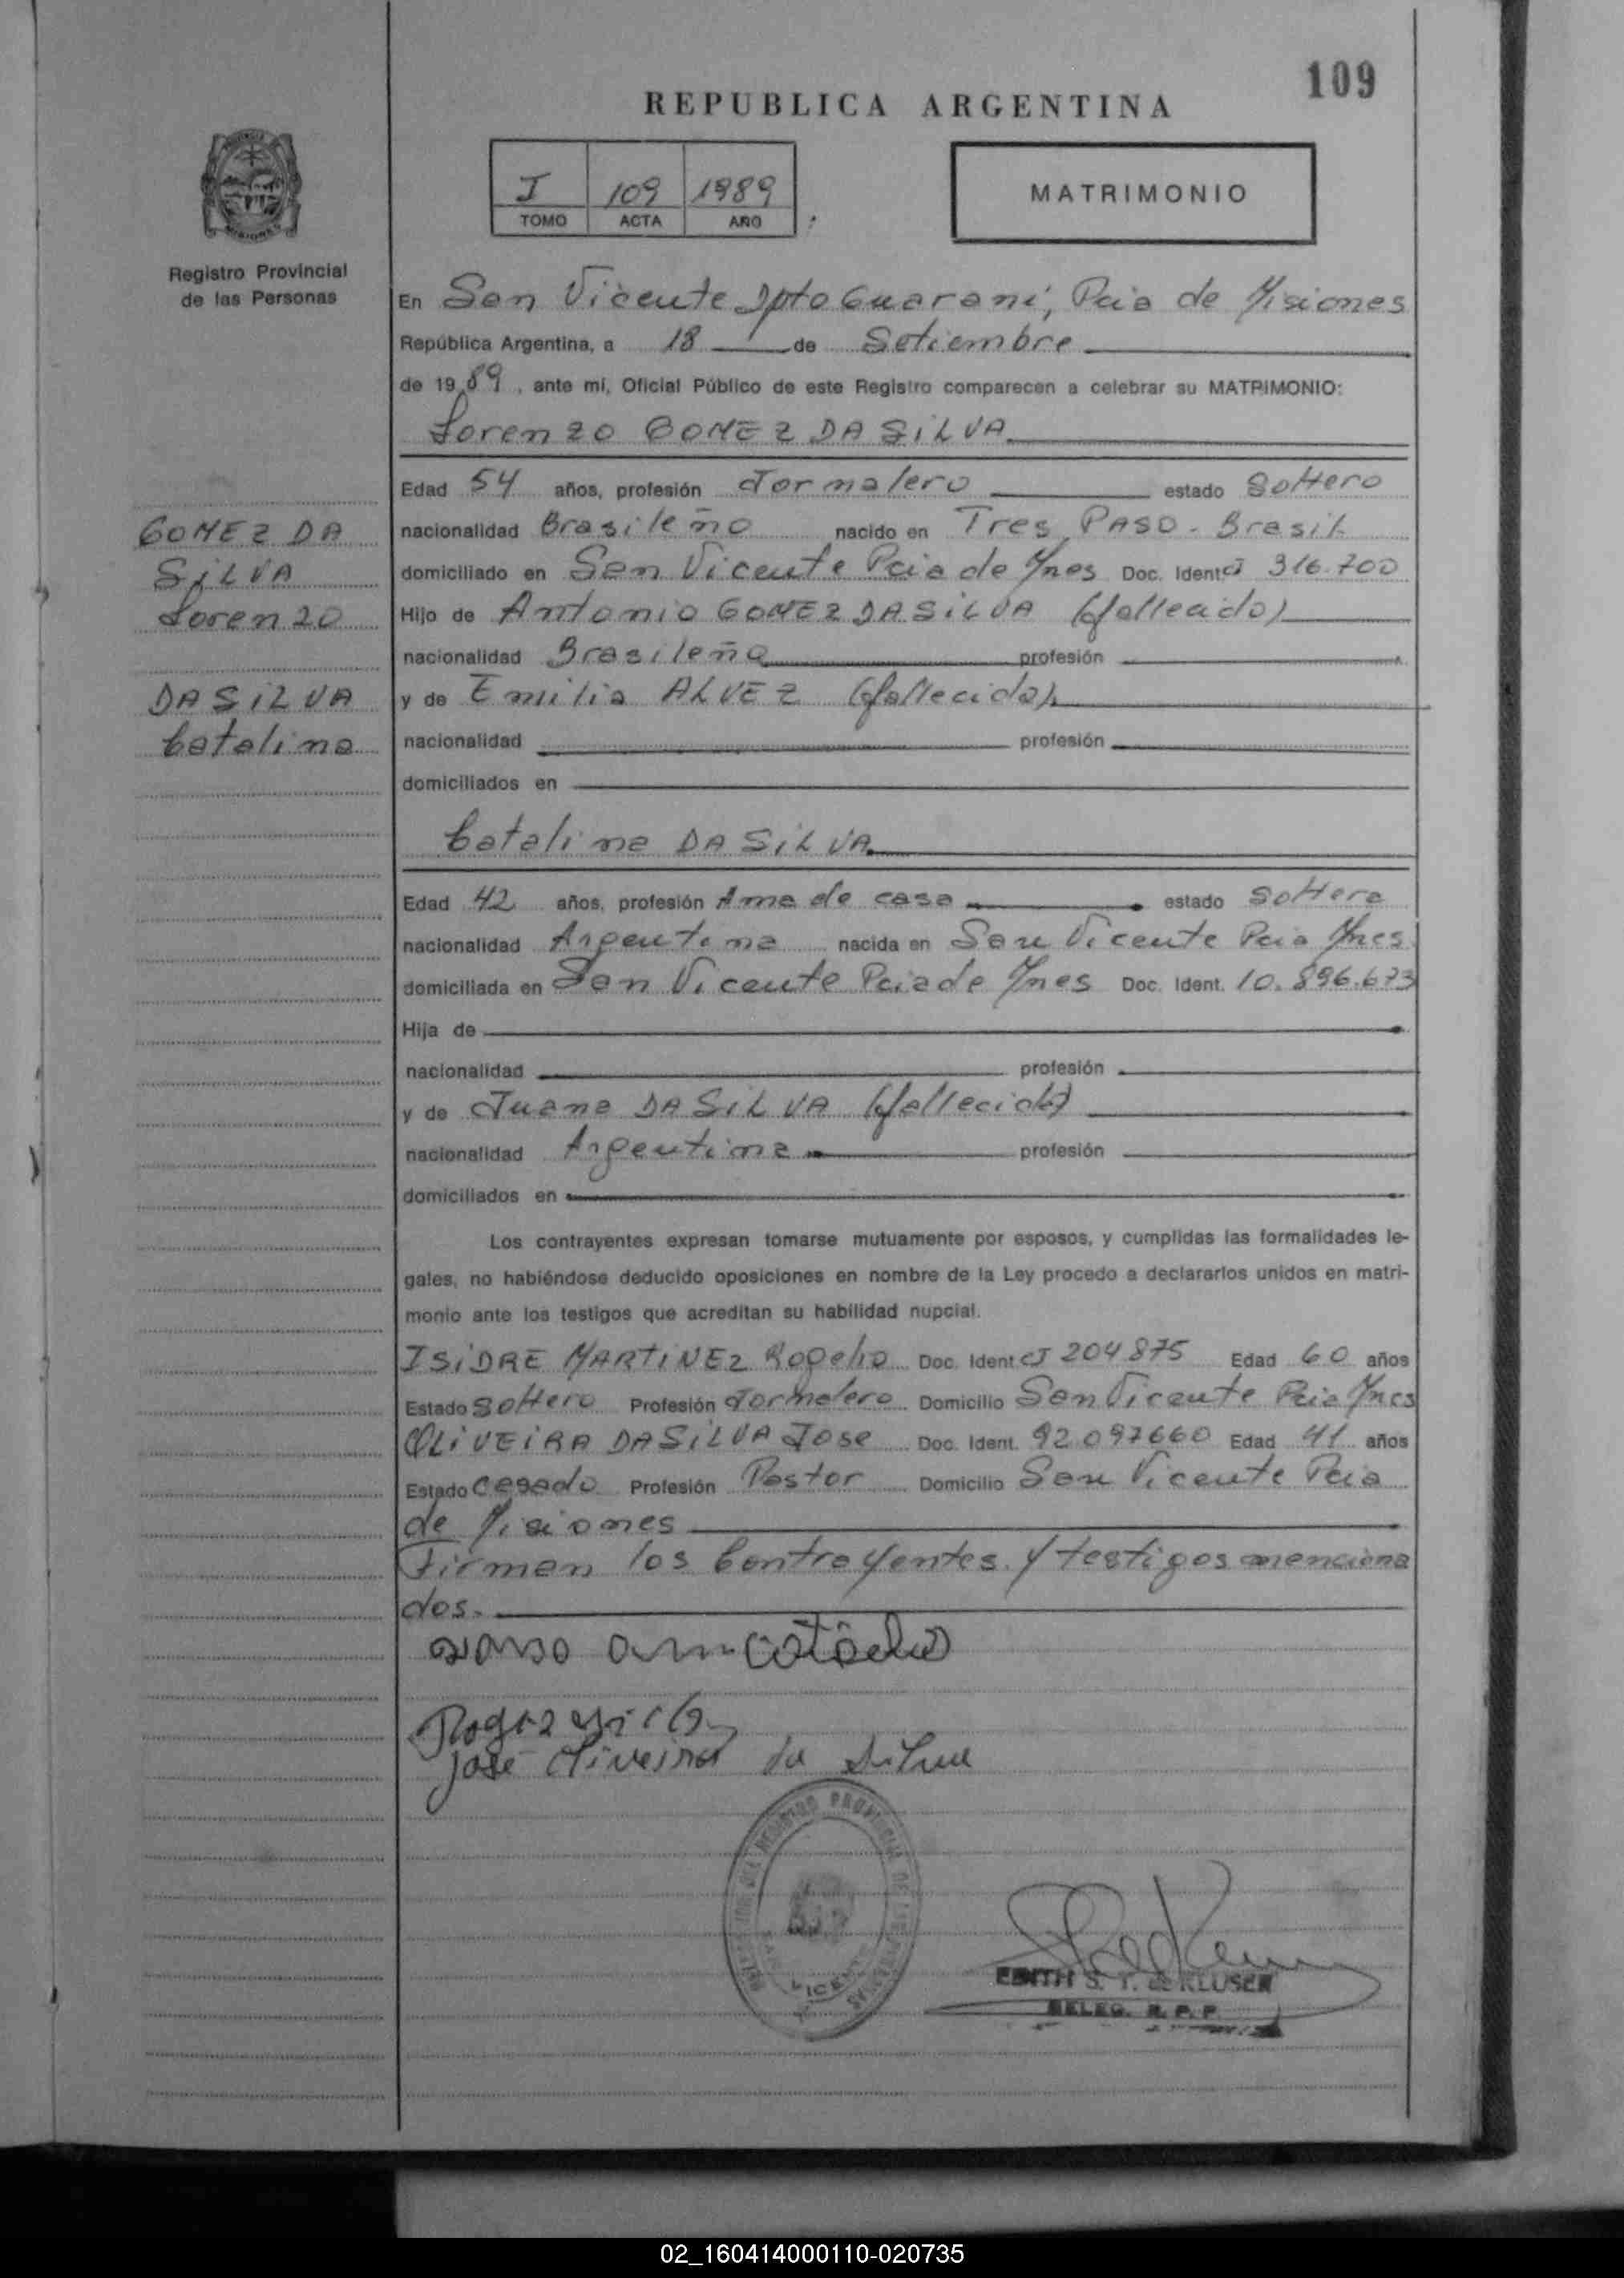 109
REPUBLICA ARGENTINA
I 109 1989
TOMO ACTA AÑO
MATRIMONIO
Registro Provincial
de las Personas
En San Vicente Dpto Guarani, Pcia de Misiones
República Argentina, a 18 de Setiembre
de 1989, ante mí, Oficial Público de este Registro comparecen a celebrar su MATRIMONIO:
Lorenzo GOMEZ DA SILVA
Edad 54 años, profesión Jornalero estado Soltero
nacionalidad Brasileño nacido en Tres PASO - Brasil
domiciliado en San Vicente Pcia de Mnes Doc. Ident. CI 316.700
Hijo de Antonio GOMEZ DA SILVA (fallecido)
nacionalidad Brasileña profesión
y de Emilia ALVEZ (fallecida)
nacionalidad profesión
domiciliados en
Catalina DA SILVA
Edad 42 años, profesión Ama de casa estado Soltera
nacionalidad Argentina nacida en San Vicente Pcia Mnes
domiciliada en San Vicente Pcia de Mnes Doc. Ident. 10.896.673
Hija de
nacionalidad profesión
y de Juana DA SILVA (fallecida)
nacionalidad Argentina profesión
domiciliados en
GOMEZ DA
SILVA
Lorenzo
DA SILVA
Catalina
Los contrayentes expresan tomarse mutuamente por esposos, y cumplidas las formalidades le-
gales, no habiéndose deducido oposiciones en nombre de la Ley procedo a declararlos unidos en matri-
monio ante los testigos que acreditan su habilidad nupcial.
ISIDRE MARTINEZ Rogelio Doc. Ident CI 204875 Edad 60 años
Estado Soltero Profesión Jornalero Domicilio San Vicente Pcia Mnes
OLIVEIRA DA SILVA Jose Doc. Ident. 92.097660 Edad 41 años
Estado Casado Profesión Pastor Domicilio San Vicente Pcia
de Misiones
Firman los Contrayentes y testigos menciona
dos.
José Oliveira da Silva
VICENTE
EDITH S. T. de KLUSER
DELEG. R. P. P.
02_160414000110-020735